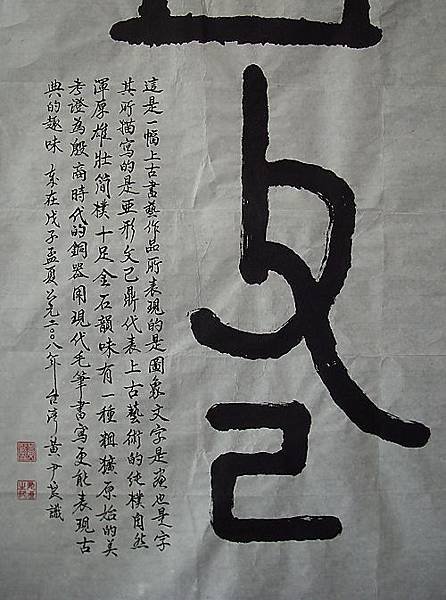 父
己
這是一幅上古書藝作品所表現的是圖象文字是畫也是字
其所描寫的是亞形父己鼎代表上古藝術的純樸自然
渾厚雄壯簡樸十足金石韻味有一種粗獷原始的美
考證為殷商時代的銅器用現代毛筆書寫更能表現古
典的趣味 歲在戊子孟夏公元二〇〇八年 黃尹 識